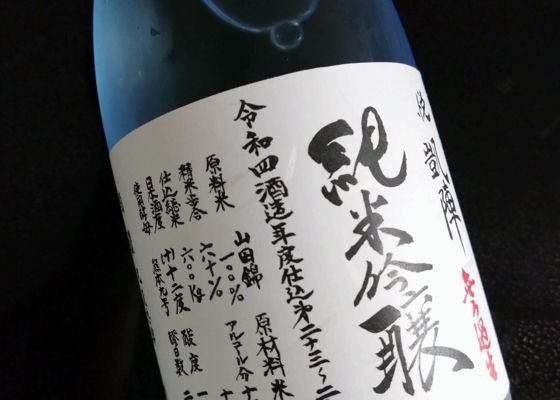 悦 凱陣
無濾過生
純米吟醸
令和四酒造年度仕込第二十三～二
原料米 山田錦 原材料米
精米歩合 六十% アルコール分十
仕込総米 六〇〇kg 酸度 一
日本酒度 (+)十二度
使用酵母 熊本九号